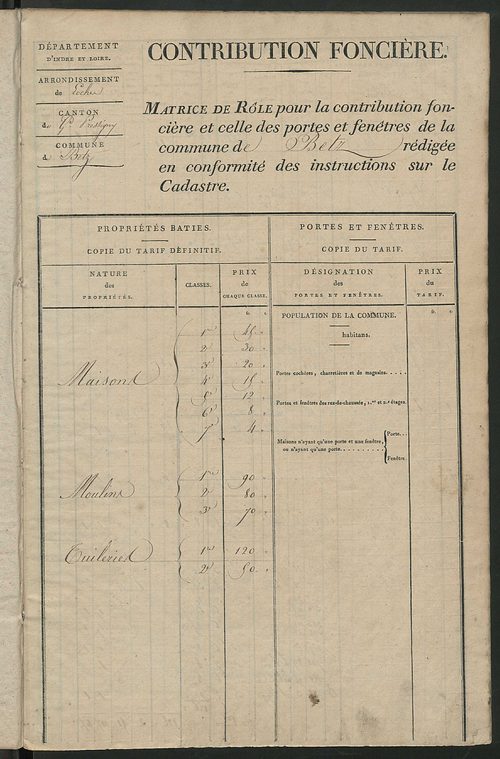 DÉPARTEMENT
D'INDRE ET LOIRE.
ARRONDISSEMENT
de Loches
CANTON
de Gd Pressigny
COMMUNE
de Betz
CONTRIBUTION FONCIÈRE.
MATRICE DE RÔLE pour la contribution fon-
cière et celle des portes et fenêtres de la
commune de Betz rédigée
en conformité des instructions sur le
Cadastre.
PROPRIÉTÉS BATIES.
COPIE DU TARIF DÉFINITIF.
NATURE
des
PROPRIÉTÉS.
CLASSES.
PRIX
de
CHAQUE CLASSE.
f. c.
Maisons
1re 45
2e 30
3e 20
4e 15
5e 12
6e 8
7e 4
Moulins
1re 90
2e 80
3e 70
Tuileries
1re 120
2e 50
PORTES ET FENÊTRES.
COPIE DU TARIF.
DÉSIGNATION
des
PORTES ET FENÊTRES.
PRIX
du
TARIF.
f. c.
POPULATION DE LA COMMUNE.
habitans.
Portes cochères, charretières et de magasins.....
Portes et fenêtres des rez-de-chaussée, 1.er et 2.e étages.
Maisons n'ayant qu'une porte et une fenêtre,
ou n'ayant qu'une porte.............
Porte...
Fenêtre.